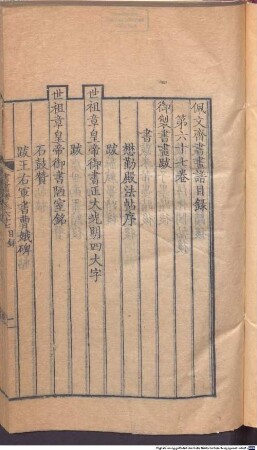 佩文齋書畫譜目録
第六十七卷
御製書畫跋
書
懋勤殿法帖序
跋
世祖章皇帝御書正大光明四大字
跋
世祖章皇帝御書陋室銘
石鼓贊
跋王右軍書曹娥碑